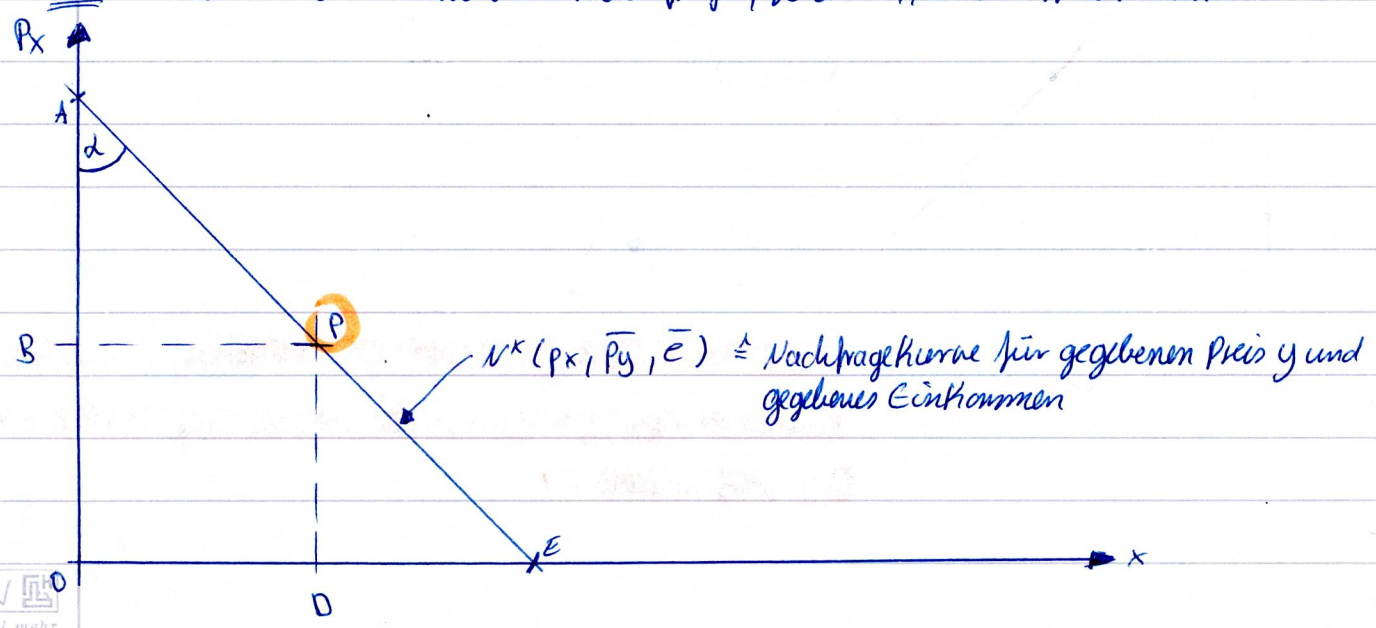 Px
A
α
P
B
N^x (px, p̄y, ē) ≙ Nachfragekurve für gegebenen Preis y und
gegebenes Einkommen
E
x
0
D
mehr